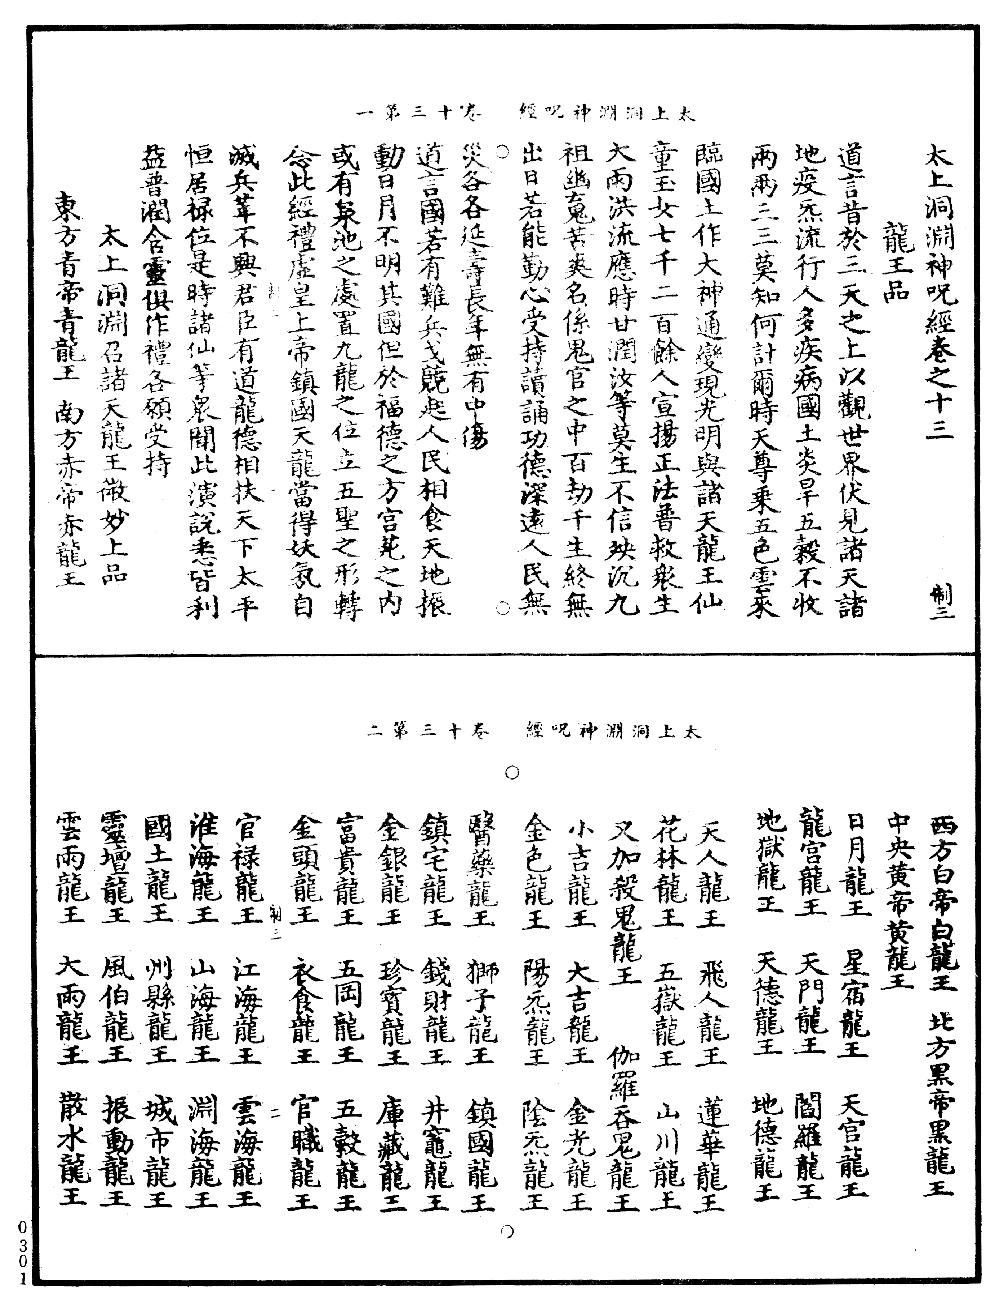 太上洞淵神呪經　卷十三第一
太上洞淵神呪經卷之十三　制三
龍王品
道言昔於三天之上以觀世界伏見諸天諸
地疫炁流行人多疾病國土炎旱五穀不收
兩兩三三莫知何計爾時天尊乘五色雲來
臨國土作大神通變現光明與諸天龍王仙
童玉女七千二百餘人宣揚正法普救衆生
大雨洪流應時甘潤汝等莫生不信殃沉九
祖幽䰟苦爽名係鬼官之中百劫千生終無
出日若能勤心受持讀誦功德深遠人民無
災各各延壽長年無有中傷
道言國若有難兵戈競起人民相食天地振
動日月不明其國但於福德之方宫苑之内
或有泉池之處置九龍之位立五聖之形轉
念此經禮虛皇上帝鎮國天龍當得妖氛自
滅兵革不興君臣有道龍德相扶天下太平
恒居禄位是時諸仙等衆聞此演說悉皆利
益普潤含靈俱作禮各願受持
太上洞淵召諸天龍王微妙上品
東方青帝青龍王　南方赤帝赤龍王
太上洞淵神呪經　卷十三第二
西方白帝白龍王　北方黒帝黒龍王
中央黄帝黄龍王
日月龍王　星宿龍王　天官龍王
龍宫龍王　天門龍王　閻羅龍王
地獄龍王　天德龍王　地德龍王
天人龍王　飛人龍王　蓮華龍王
花林龍王　五嶽龍王　山川龍王
又加殺鬼龍王　伽羅吞鬼龍王
小吉龍王　大吉龍王　金光龍王
金色龍王　陽炁龍王　陰炁龍王
醫藥龍王　獅子龍王　鎮國龍王
鎮宅龍王　錢財龍王　井竈龍王
金銀龍王　珍寳龍王　庫藏龍王
富貴龍王　五岡龍王　五穀龍王
金頭龍王　衣食龍王　官職龍王
制三　二
官禄龍王　江海龍王　雲海龍王
淮海龍王　山海龍王　淵海龍王
國土龍王　州縣龍王　城市龍王
靈壇龍王　風伯龍王　振動龍王
雲雨龍王　大雨龍王　散水龍王
0301